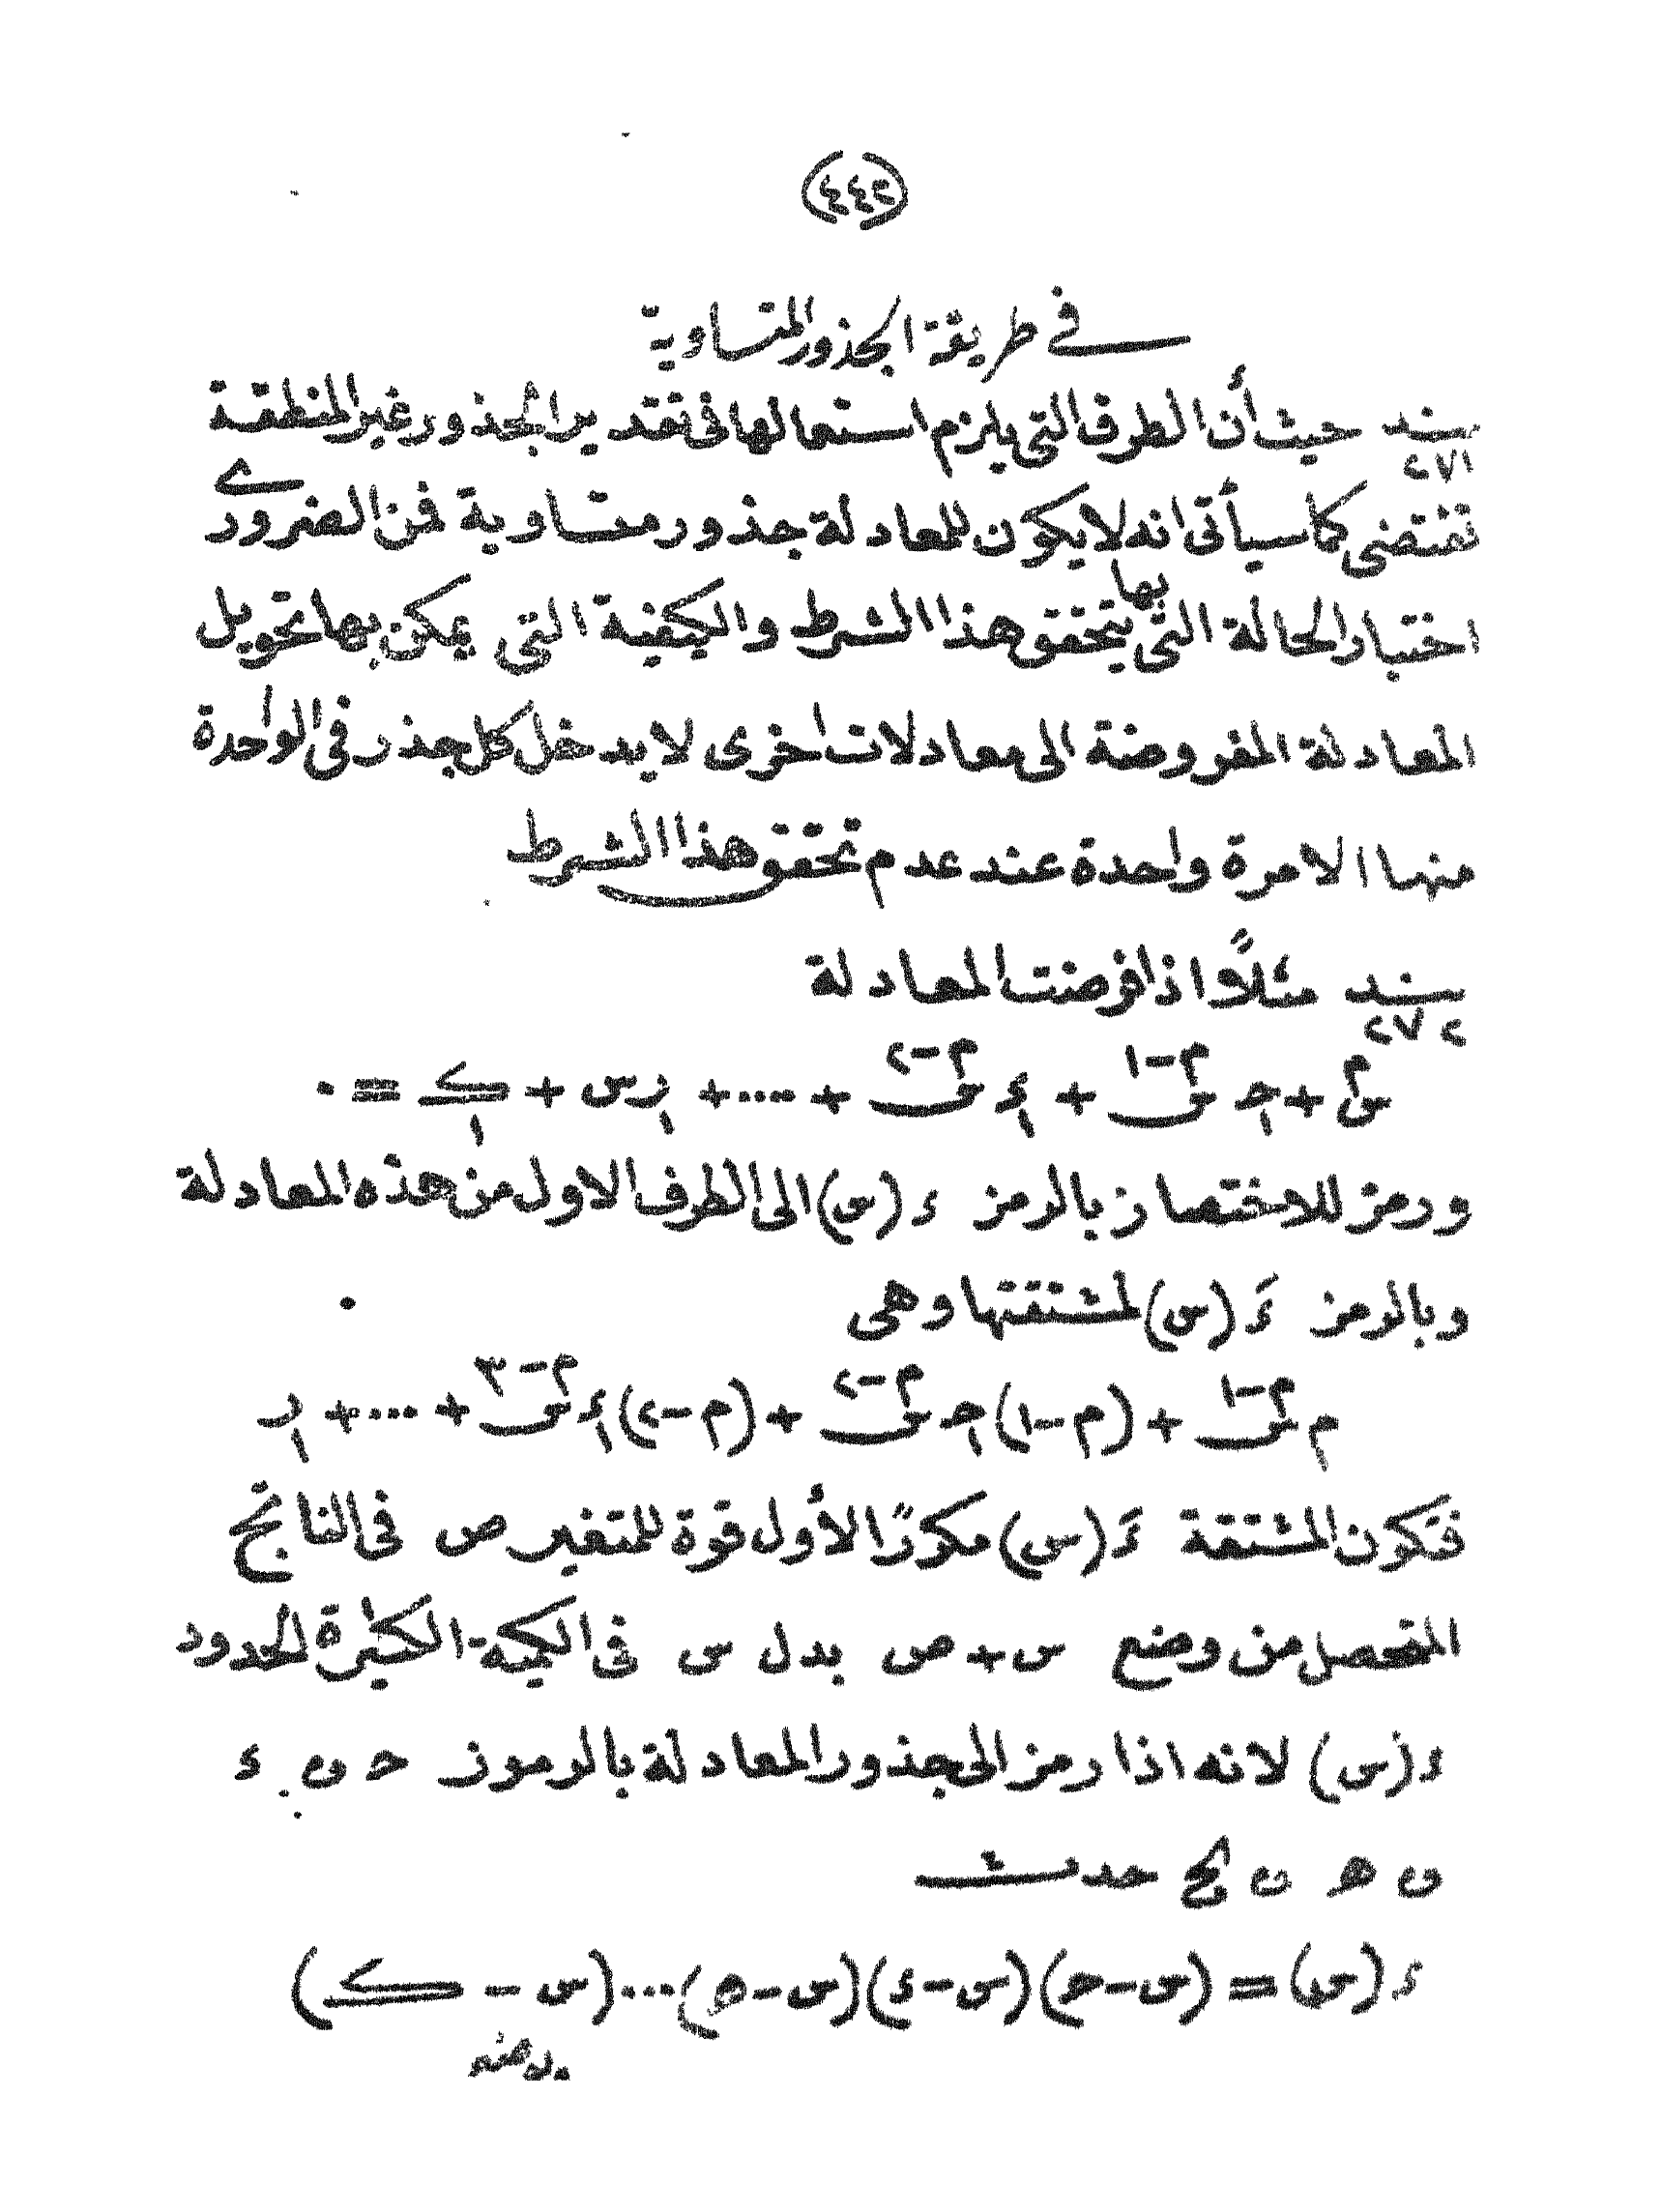 (٤٤٢)
في طريقة الجذور المتساوية
بند ٢٧١ حيث أن الطرق التى يلزم استعمالها فى تقدير الجذور غير المنطقة
تقتضى كما سيأتى انه لا يكون للمعادلة جذور متساوية فمن الضرورى
اختبار الحالة التى بها يتحقق هذا الشرط والكيفية التى يمكن بها تحويل
المعادلة المفروضة الى معادلات اخرى لا يدخل كل جذر فى الواحدة
منها الا مرة واحدة عند عدم تحقق هذا الشرط
بند ٢٧٢ مثلًا اذا فرضت المعادلة
س^م + حـ١ س^(م-١) + ء١ س^(م-٢) + .... + ر١ س + ك١ = ٠
ورمز للاختصار بالرمز ء (س) الى الطرف الاول من هذه المعادلة
وبالرمز ءَ (س) لمشتقتها وهى
م س^(م-١) + (م-١) حـ١ س^(م-٢) + (م-٢) ء١ س^(م-٣) + .... + ر١
فتكون المشتقة ءَ (س) مكررًا لأول قوة للمتغير ص فى الناتج
المتحصل من وضع س + ص بدل س فى الكمية الكثيرة الحدود
ء (س) لانه اذا رمز الى جذور المعادلة بالرموز حـ و ء
و هـ و حدث
ء (س) = (س-حـ)(س-ء)(س-هـ)...(س-ك)